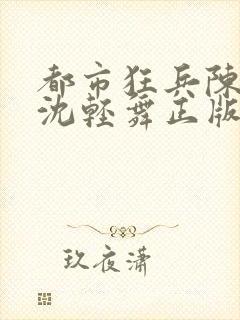 都市狂兵陳
沈輕舞正版
玖夜瀟